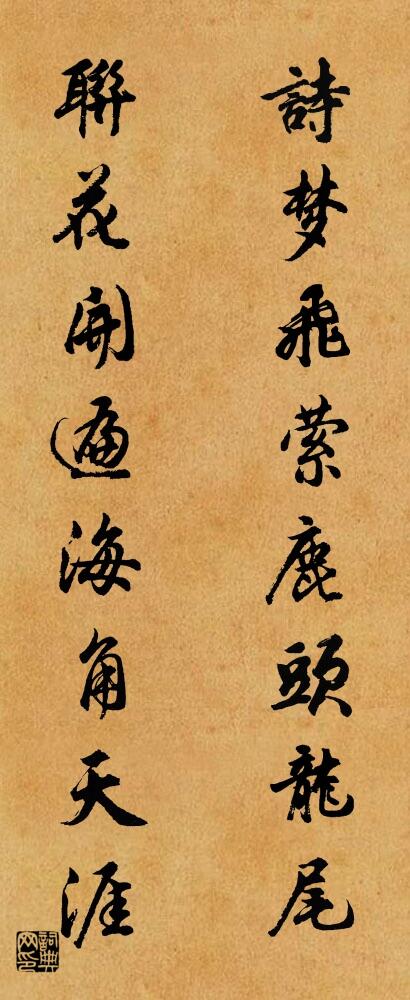 詩梦飛萦鹿頭龍尾
聯花開遍海角天涯
詞典网印